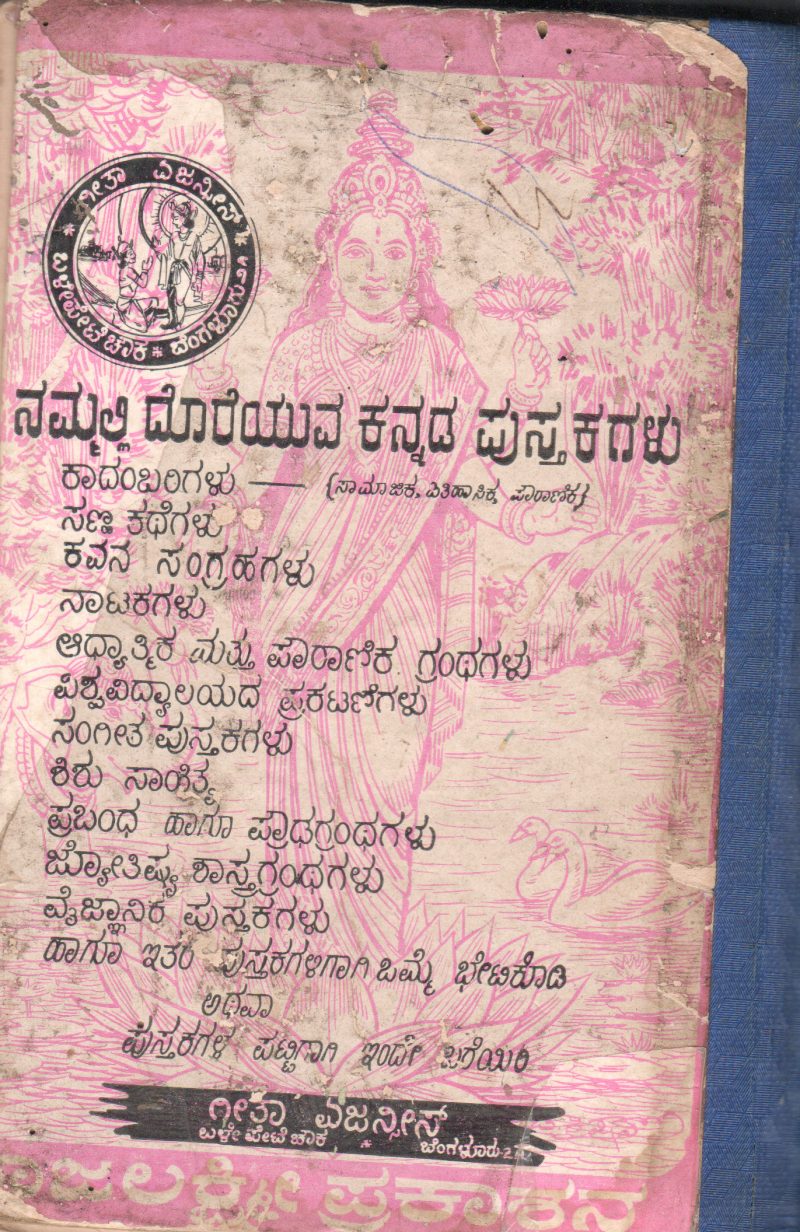 ಗೀತಾ ಏಜನ್ಸೀಸ್
ಬಳೇಪೇಟೆ ಚೌಕ * ಬೆಂಗಳೂರು-೨
ನಮ್ಮಲ್ಲಿ ದೊರೆಯುವ ಕನ್ನಡ ಪುಸ್ತಕಗಳು
ಕಾದಂಬರಿಗಳು — (ಸಾಮಾಜಿಕ, ಐತಿಹಾಸಿಕ, ಪೌರಾಣಿಕ)
ಸಣ್ಣ ಕಥೆಗಳು
ಕವನ ಸಂಗ್ರಹಗಳು
ನಾಟಕಗಳು
ಆಧ್ಯಾತ್ಮಿಕ ಮತ್ತು ಪೌರಾಣಿಕ ಗ್ರಂಥಗಳು
ವಿಶ್ವವಿದ್ಯಾಲಯದ ಪ್ರಕಟಣೆಗಳು
ಸಂಗೀತ ಪುಸ್ತಕಗಳು
ಶಿಶು ಸಾಹಿತ್ಯ
ಪ್ರಬಂಧ ಹಾಗೂ ಪ್ರೌಢಗ್ರಂಥಗಳು
ಜ್ಯೋತಿಷ್ಯ ಶಾಸ್ತ್ರಗ್ರಂಥಗಳು
ವೈಜ್ಞಾನಿಕ ಪುಸ್ತಕಗಳು
ಹಾಗೂ ಇತರ ಪುಸ್ತಕಗಳಿಗಾಗಿ ಒಮ್ಮೆ ಭೇಟಿಕೊಡಿ
ಅಥವಾ
ಪುಸ್ತಕಗಳ ಪಟ್ಟಿಗಾಗಿ ಇಂದೇ ಬರೆಯಿರಿ
ಗೀತಾ ಏಜನ್ಸೀಸ್
ಬಳೇಪೇಟೆ ಚೌಕ * ಬೆಂಗಳೂರು-2
ರಾಜಲಕ್ಷ್ಮೀ ಪ್ರಕಾಶನ